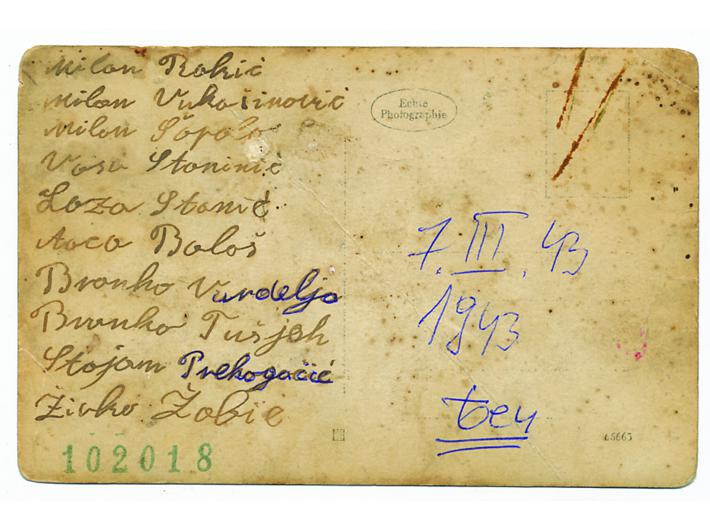 Milan Rokić
Milan Vukašinović
Milan Šopalo
Vaso Staninić
Lazo Stanić
Aaco Baloš
Branko Vurdelja
Branko Tušjah
Stojam Prekogačić
Živko Žabić
102018
Echte
Photographie
7. III. 43
1943
65663